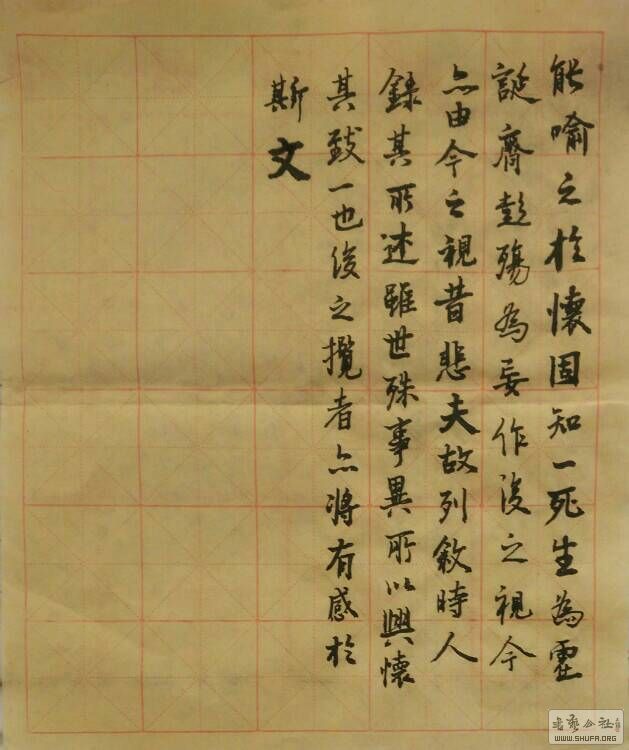 能喻之於懷固知一死生為虛
誕齊彭殤為妄作後之視今
亦由今之視昔悲夫故列敘時人
錄其所述雖世殊事異所以興懷
其致一也後之攬者亦將有感於
斯文
WWW.SHUFA.ORG